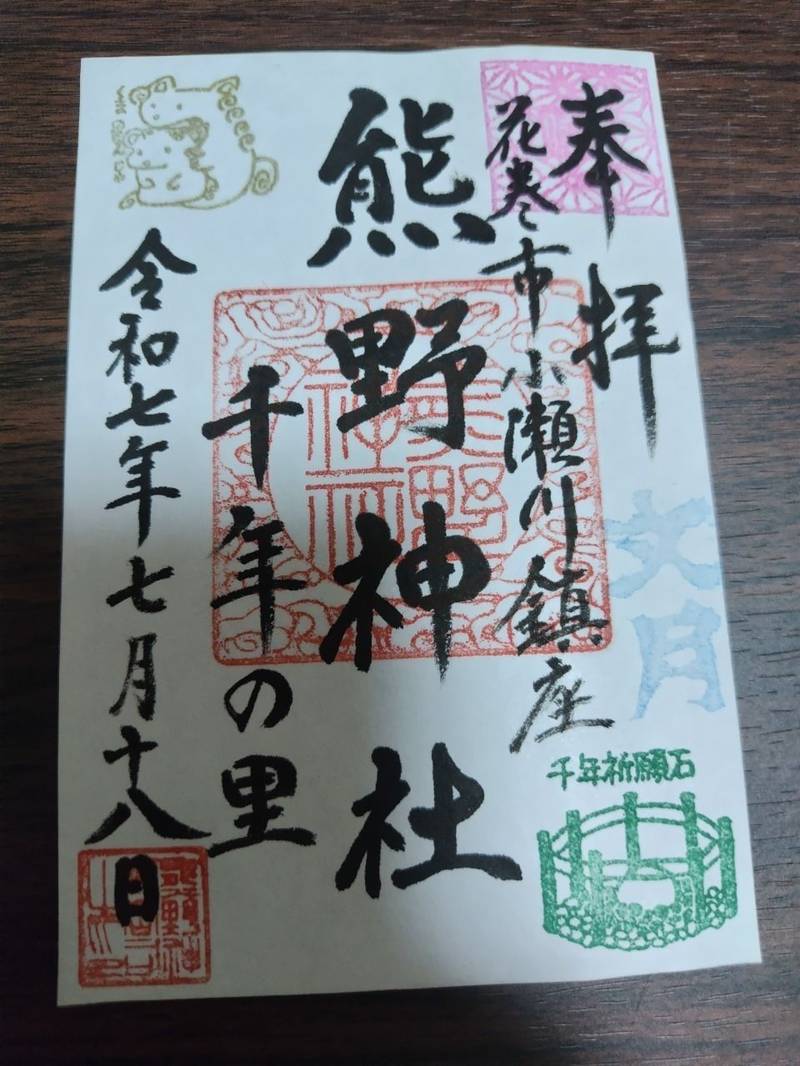 奉拝
花巻市小瀬川鎮座
文月
千年祈願石
熊野神社
千年の里
令和七年七月十八日